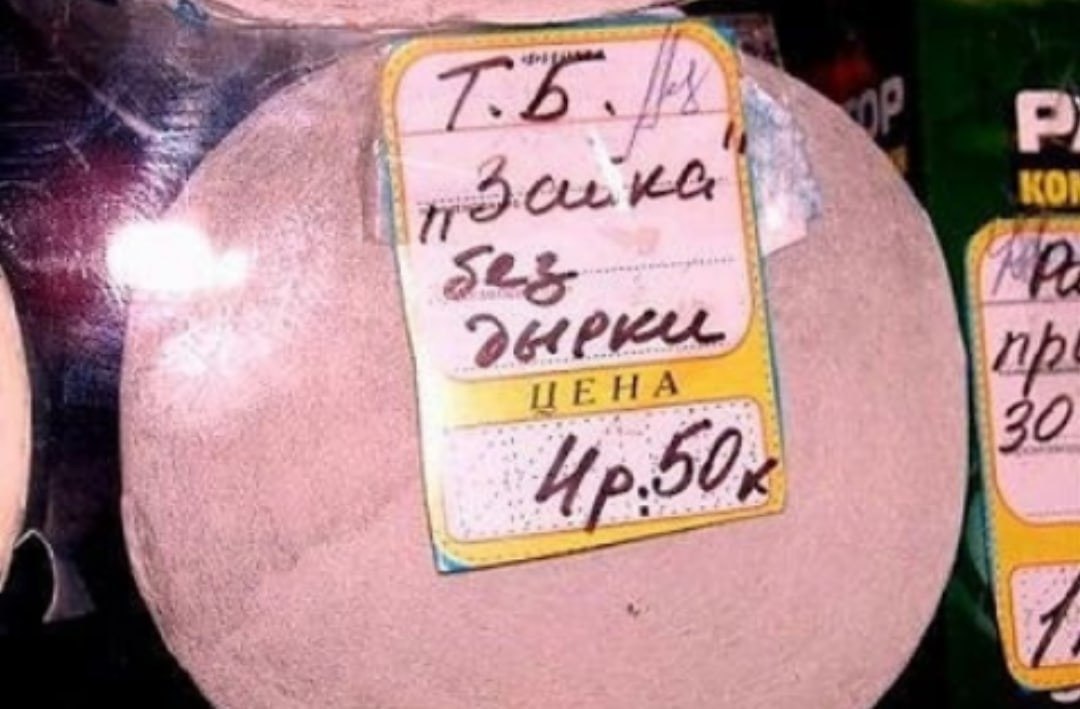 Т.Б.
"Зайка"
без
дырки
ЦЕНА
4р.50к
ОР
КОМ
Ра
при
30